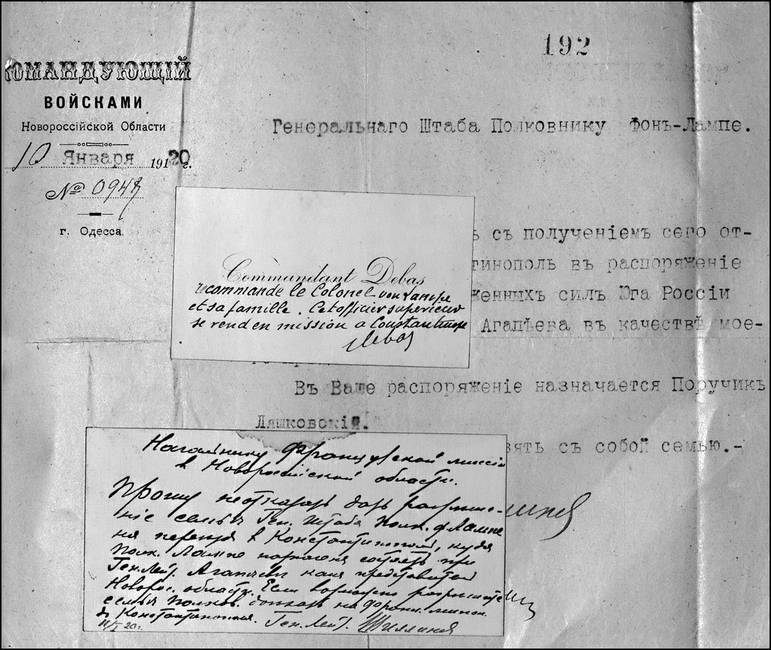 192
КОМАНДУЮЩІЙ
ВОЙСКАМИ
Новороссійской Области
10 Января 1920 г.
№ 0948
г. Одесса.
Генеральнаго Штаба Полковнику Фонъ-Лампе.
ъ съ полученіемъ сего от-
тинополь въ распоряженіе
женныхъ силъ Юга Россіи
Агапѣева въ качествѣ мое-
Въ Ваше распоряженіе назначается Поручикъ
Ляшковскій.
взять съ собой семью.-
Commandant Debas
recommande le Colonel von Lampe
et sa famille. Cet officier supérieur
se rend en mission à Constantinople
Debas
Начальнику Французской миссіи
въ Новороссійской области.
Прошу не отказать дать разрѣше-
ніе семьѣ Ген. Штаба Полк. ф. Лампе
на переѣздъ въ Константинополь, куда
Полк. Лампе
при
Ген. Лейт. Агапѣевѣ какъ представитель
Новорос. области. Если возможно разрѣшите
семьѣ Полков.
на Франц.
до Константинополя. Ген. Лейт. Шиллингъ
11/I 20 г.